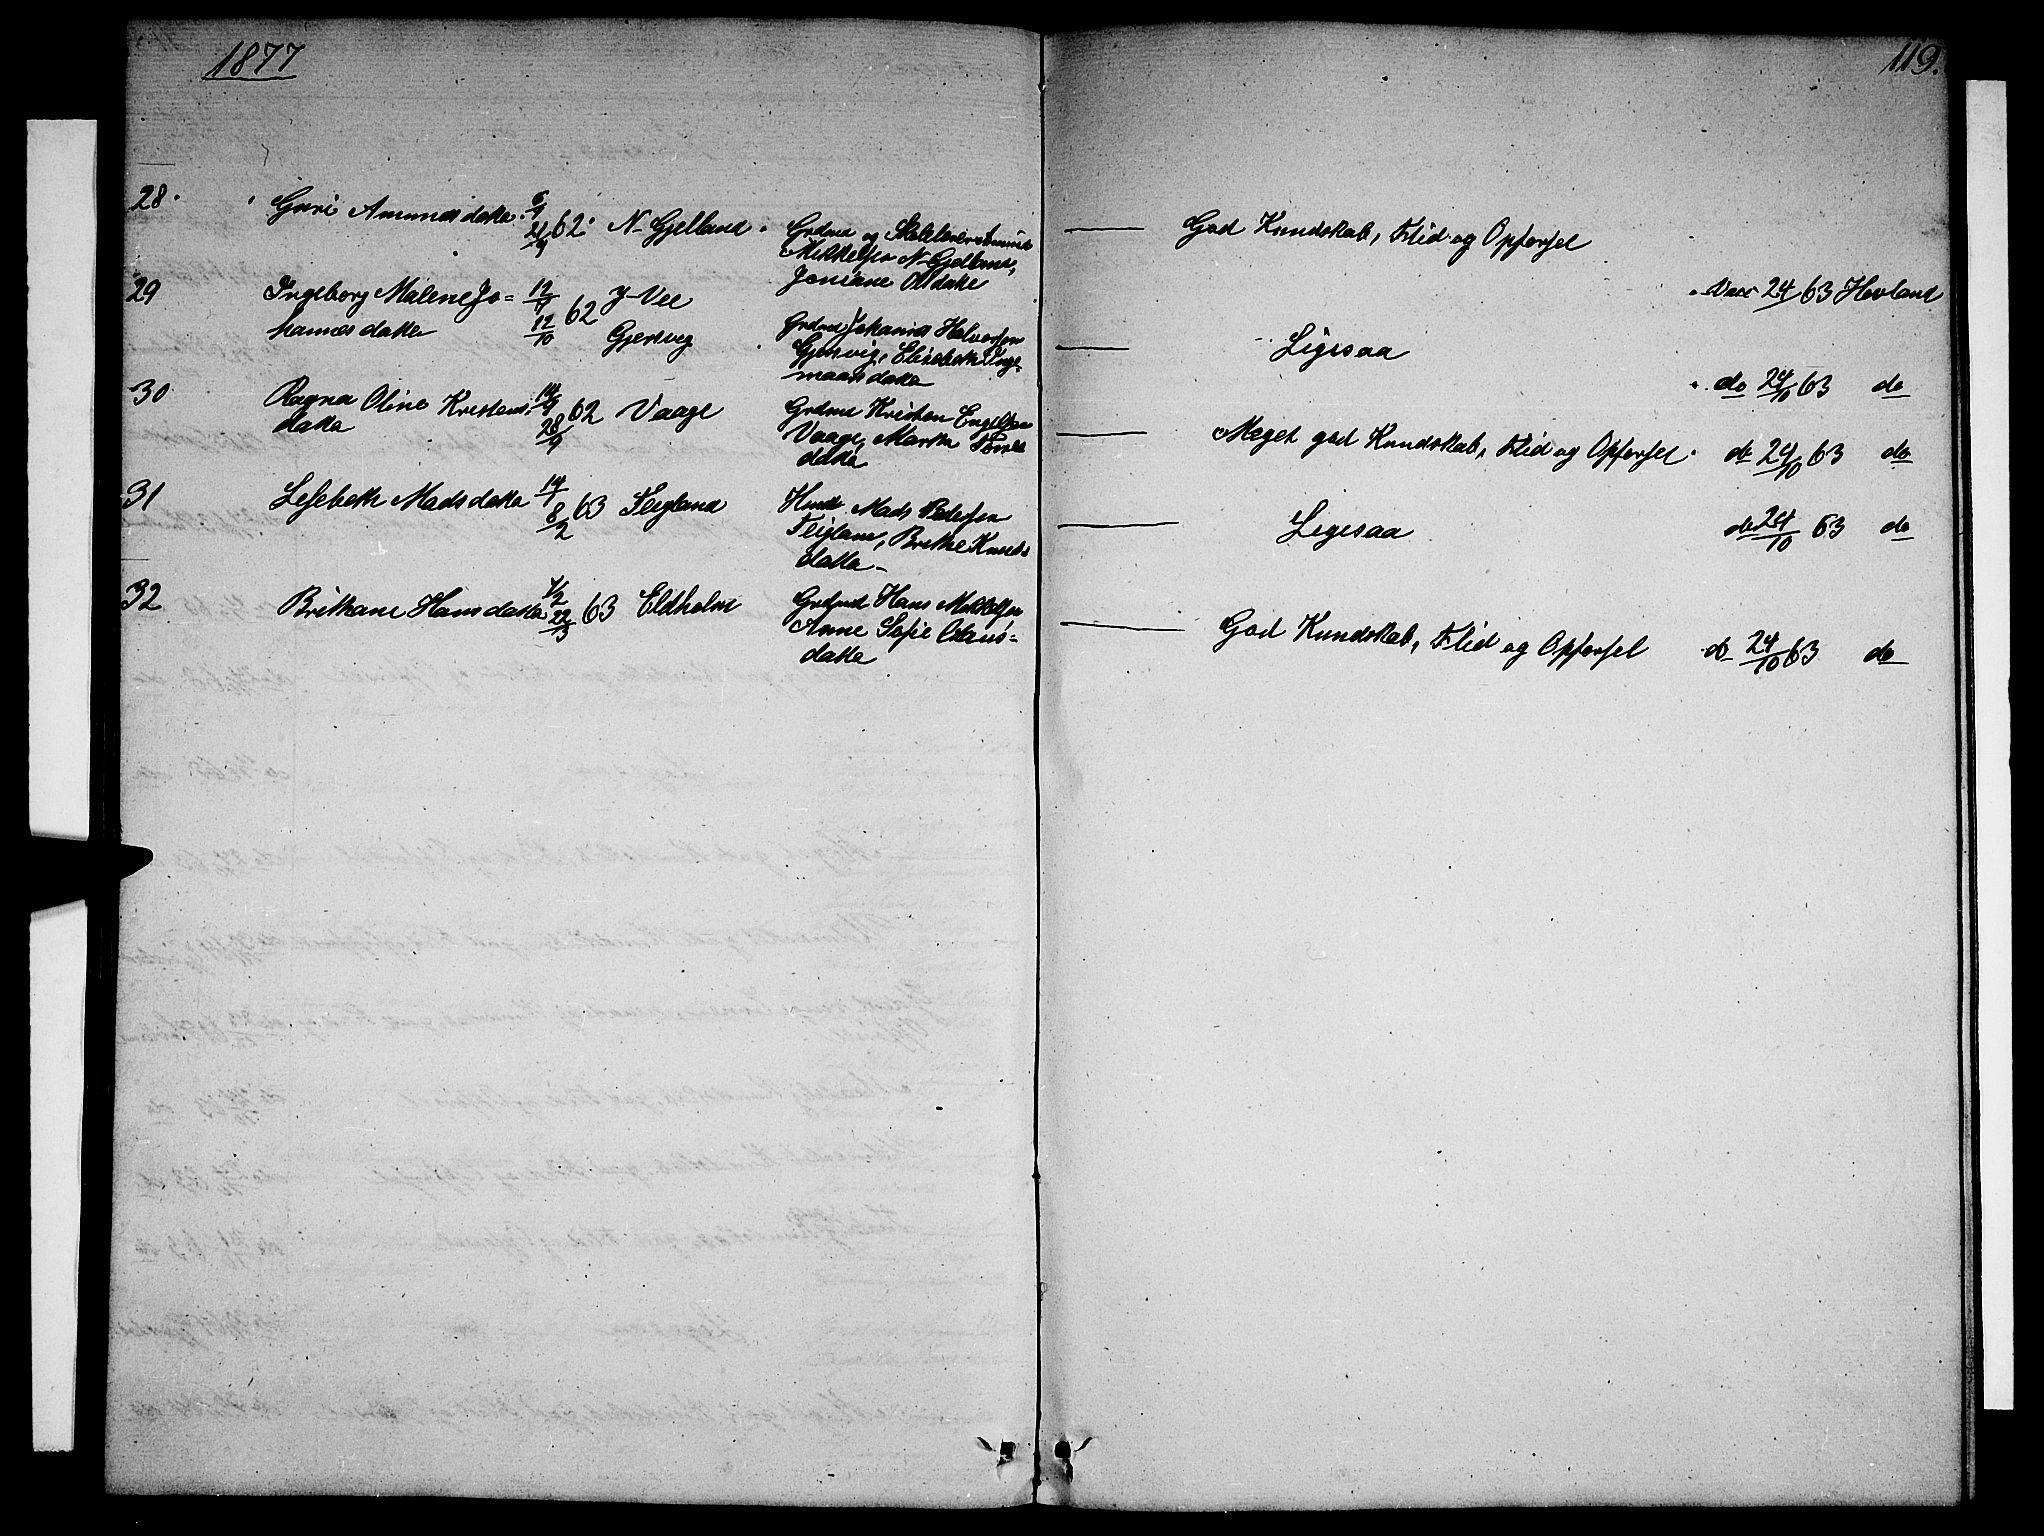 1877
119.
28.
Guri Amundsdatter.
6/9 62.
21/9
N-Gjelland.
Grdmd og Skolelærer Amund
Mikkelsen N-Gjelland,
Joniane Olsdatter
God Kundskab, Flid og Opførsel
Vacc 24/ 63 Hovland
29
Ingeborg Malene Jo=
hannesdatter
12/9 62
12/10
Y-Vee
Gjersvig
Grdmd Johannes Halvorsen
Gjersvig, Elisabeth Inge-
maarsdatter
Ligesaa
do 24/10 63 do
30
Ragna Oline Kristens-
datter
14/9 62
28/9
Vaage
Grdmd Kristen Engelsen
Vaage, Martha
datter
Meget god Kundskab, Flid og Opførsel.
do 24/10 63 do
31
Lisebeth Madsdatter
14/1 63
8/2
Flegland
Husmd Mads Pedersen
Fleglane, Brithe Knuds
datter
Ligesaa
do 24/10 63 do
32
Brithane Hansdatter
1/2 63
22/3
Eldholm
Grdmd Hans Mikkelsen
Anne Sofie Claus=
datter
God Kundskab, Flid og Opførsel
do 24/10 63 do